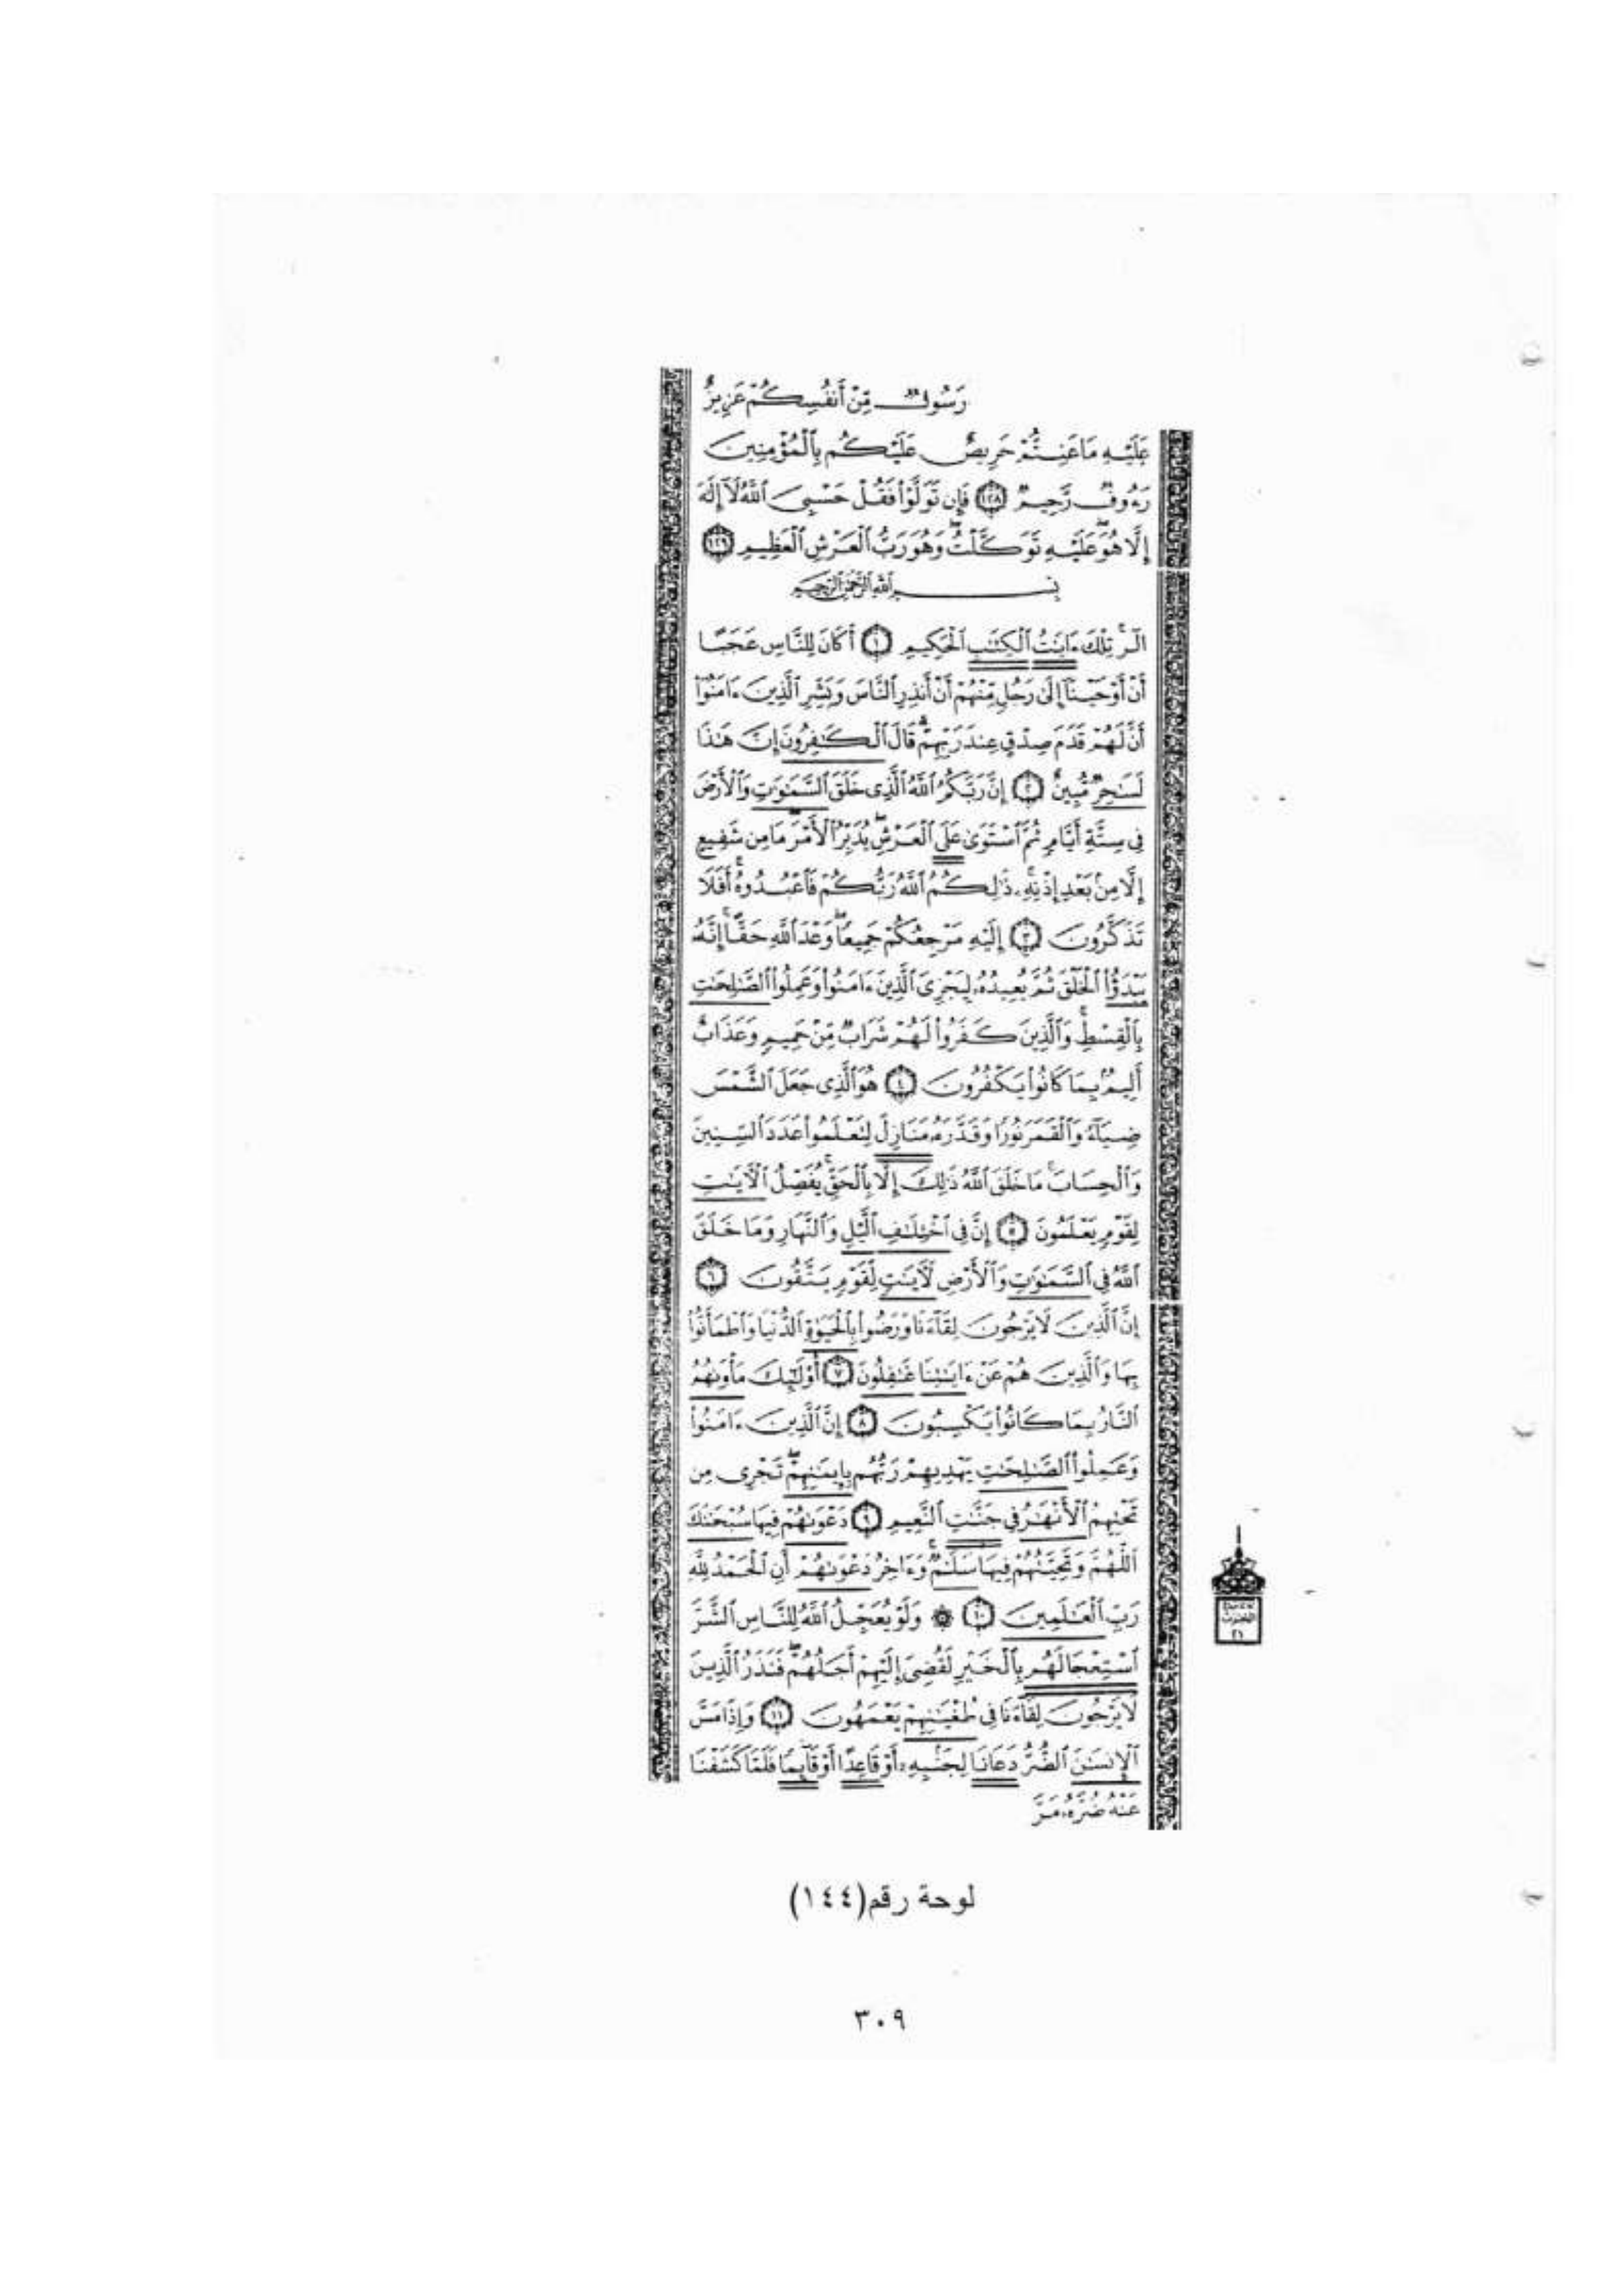 رَسُولٌ مِّنْ أَنفُسِكُمْ عَزِيزٌ
عَلَيْهِ مَا عَنِتُّمْ حَرِيصٌ عَلَيْكُم بِالْمُؤْمِنِينَ
رَءُوفٌ رَّحِيمٌ ١٢٨ فَإِن تَوَلَّوْا۟ فَقُلْ حَسْبِىَ ٱللَّهُ لَآ إِلَٰهَ
إِلَّا هُوَ ۖ عَلَيْهِ تَوَكَّلْتُ ۖ وَهُوَ رَبُّ ٱلْعَرْشِ ٱلْعَظِيمِ ١٢٩
بِسْمِ ٱللَّهِ ٱلرَّحْمَٰنِ ٱلرَّحِيمِ
الٓر ۚ تِلْكَ ءَايَٰتُ ٱلْكِتَٰبِ ٱلْحَكِيمِ ١ أَكَانَ لِلنَّاسِ عَجَبًا
أَنْ أَوْحَيْنَآ إِلَىٰ رَجُلٍ مِّنْهُمْ أَنْ أَنذِرِ ٱلنَّاسَ وَبَشِّرِ ٱلَّذِينَ ءَامَنُوٓا۟
أَنَّ لَهُمْ قَدَمَ صِدْقٍ عِندَ رَبِّهِمْ ۗ قَالَ ٱلْكَٰفِرُونَ إِنَّ هَٰذَا
لَسَٰحِرٌ مُّبِينٌ ٢ إِنَّ رَبَّكُمُ ٱللَّهُ ٱلَّذِى خَلَقَ ٱلسَّمَٰوَٰتِ وَٱلْأَرْضَ
فِى سِتَّةِ أَيَّامٍ ثُمَّ ٱسْتَوَىٰ عَلَى ٱلْعَرْشِ ۖ يُدَبِّرُ ٱلْأَمْرَ ۖ مَا مِن شَفِيعٍ
إِلَّا مِنۢ بَعْدِ إِذْنِهِۦ ۚ ذَٰلِكُمُ ٱللَّهُ رَبُّكُمْ فَٱعْبُدُوهُ ۚ أَفَلَا
تَذَكَّرُونَ ٣ إِلَيْهِ مَرْجِعُكُمْ جَمِيعًا ۖ وَعْدَ ٱللَّهِ حَقًّا ۚ إِنَّهُۥ
يَبْدَؤُا۟ ٱلْخَلْقَ ثُمَّ يُعِيدُهُۥ لِيَجْزِىَ ٱلَّذِينَ ءَامَنُوا۟ وَعَمِلُوا۟ ٱلصَّٰلِحَٰتِ
بِٱلْقِسْطِ ۚ وَٱلَّذِينَ كَفَرُوا۟ لَهُمْ شَرَابٌ مِّنْ حَمِيمٍ وَعَذَابٌ
أَلِيمٌۢ بِمَا كَانُوا۟ يَكْفُرُونَ ٤ هُوَ ٱلَّذِى جَعَلَ ٱلشَّمْسَ
ضِيَآءً وَٱلْقَمَرَ نُورًا وَقَدَّرَهُۥ مَنَازِلَ لِتَعْلَمُوا۟ عَدَدَ ٱلسِّنِينَ
وَٱلْحِسَابَ ۚ مَا خَلَقَ ٱللَّهُ ذَٰلِكَ إِلَّا بِٱلْحَقِّ ۚ يُفَصِّلُ ٱلْءَايَٰتِ
لِقَوْمٍ يَعْلَمُونَ ٥ إِنَّ فِى ٱخْتِلَٰفِ ٱلَّيْلِ وَٱلنَّهَارِ وَمَا خَلَقَ
ٱللَّهُ فِى ٱلسَّمَٰوَٰتِ وَٱلْأَرْضِ لَءَايَٰتٍ لِّقَوْمٍ يَتَّقُونَ ٦
إِنَّ ٱلَّذِينَ لَا يَرْجُونَ لِقَآءَنَا وَرَضُوا۟ بِٱلْحَيَوٰةِ ٱلدُّنْيَا وَٱطْمَأَنُّوا۟
بِهَا وَٱلَّذِينَ هُمْ عَنْ ءَايَٰتِنَا غَٰفِلُونَ ٧ أُو۟لَٰٓئِكَ مَأْوَىٰهُمُ
ٱلنَّارُ بِمَا كَانُوا۟ يَكْسِبُونَ ٨ إِنَّ ٱلَّذِينَ ءَامَنُوا۟
وَعَمِلُوا۟ ٱلصَّٰلِحَٰتِ يَهْدِيهِمْ رَبُّهُم بِإِيمَٰنِهِمْ ۖ تَجْرِى مِن
تَحْتِهِمُ ٱلْأَنْهَٰرُ فِى جَنَّٰتِ ٱلنَّعِيمِ ٩ دَعْوَىٰهُمْ فِيهَا سُبْحَٰنَكَ
ٱللَّهُمَّ وَتَحِيَّتُهُمْ فِيهَا سَلَٰمٌ ۚ وَءَاخِرُ دَعْوَىٰهُمْ أَنِ ٱلْحَمْدُ لِلَّهِ
رَبِّ ٱلْعَٰلَمِينَ ١٠ ۞ وَلَوْ يُعَجِّلُ ٱللَّهُ لِلنَّاسِ ٱلشَّرَّ
ٱسْتِعْجَالَهُم بِٱلْخَيْرِ لَقُضِىَ إِلَيْهِمْ أَجَلُهُمْ ۖ فَنَذَرُ ٱلَّذِينَ
لَا يَرْجُونَ لِقَآءَنَا فِى طُغْيَٰنِهِمْ يَعْمَهُونَ ١١ وَإِذَا مَسَّ
ٱلْإِنسَٰنَ ٱلضُّرُّ دَعَانَا لِجَنۢبِهِۦٓ أَوْ قَاعِدًا أَوْ قَآئِمًا فَلَمَّا كَشَفْنَا
عَنْهُ ضُرَّهُۥ مَرَّ
لوحة رقم(١٤٤)
٣٠٩